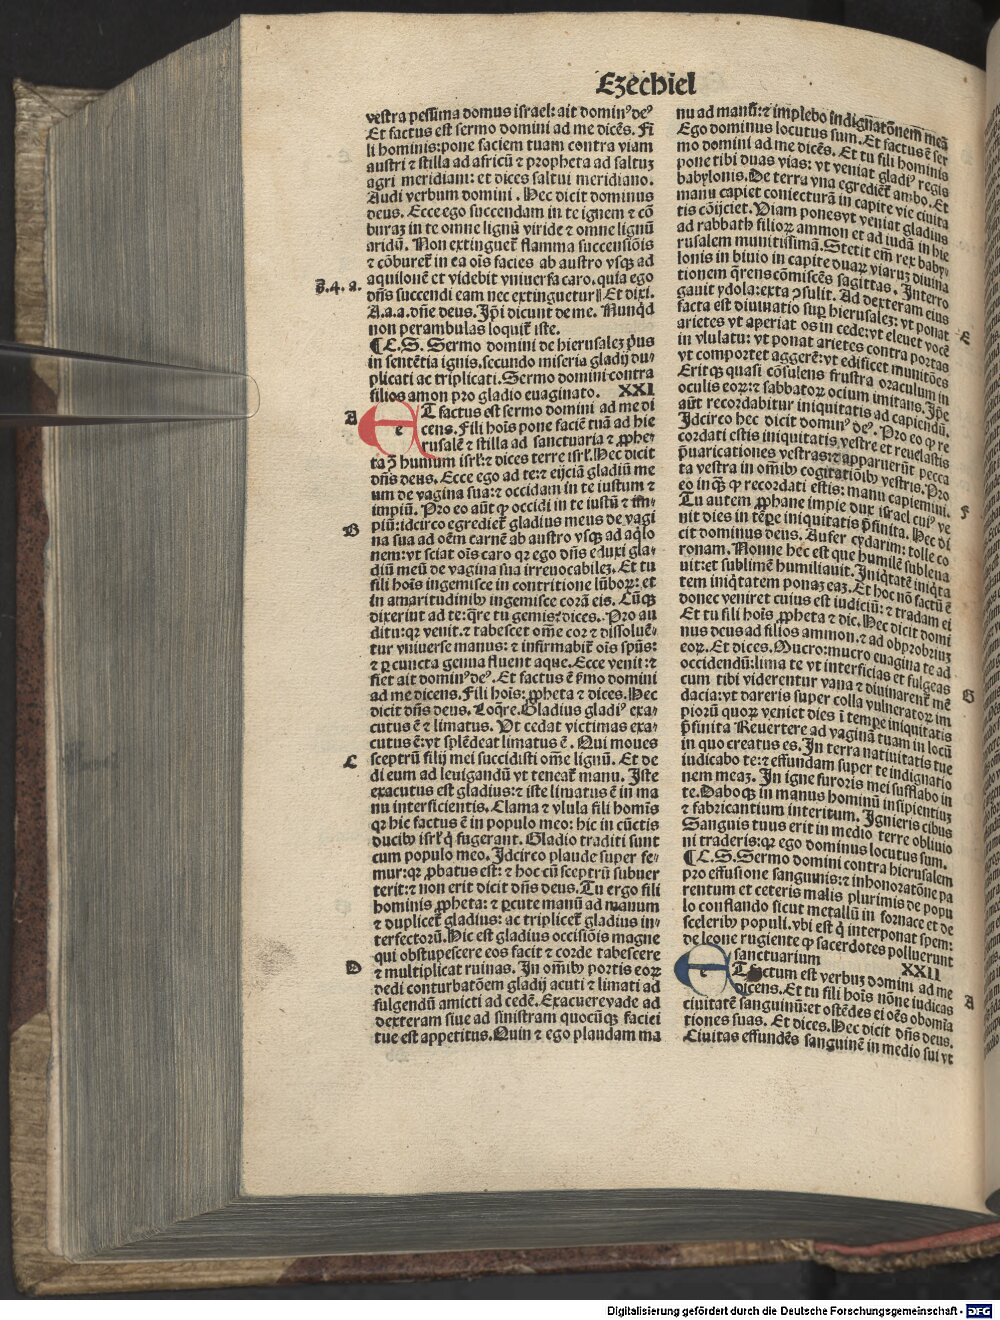 Ezechiel
vestra pessima domus israel: ait dominꝰ deꝰ
Et factus est sermo domini ad me dicẽs. Fi
li hominis: pone faciem tuam contra viam
austri ⁊ stilla ad africũ ⁊ propheta ad saltuʒ
agri meridiani: et dices saltui meridiano.
Audi verbum domini. Hec dicit dominus
deus. Ecce ego succendam in te ignem ⁊ cõ
buraʒ in te omne lignũ viride ⁊ omne lignũ
aridũ. Non extinguet̃ flamma succensiõis
⁊ cõburet̃ in ea oĩs facies ab austro vsqꝫ ad
aquilonẽ et videbit vniuersa caro. quia ego
J.4. a.
dñs succendi eam nec extinguetur Et dixi.
A.a.a. dñe deus. Ip̃i dicunt de me. Nunqd̃
non perambulas loquit̃ iste.
¶ C.S. Sermo domini de hierusaleʒ p̃us
in sentẽtia ignis. secundo miseria gladij du⸗
plicati ac triplicati. Sermo domini contra
filios amon pro gladio euaginato. XXI
A
E e T factus est sermo domini ad me di
cens. Fili hoĩs pone faciẽ tuã ad hie
rusalẽ ⁊ stilla ad sanctuaria ⁊ ꝓphe⸗
ta ↄ̃ humum isrł: ⁊ dices terre isrł. Hec dicit
dñs deus. Ecce ego ad te: ⁊ eijciã gladiũ me
um de vagina sua: ⁊ occidam in te iustum ⁊
impiũ. Pro eo aũt ꝙ occidi in te iustũ ⁊ im⸗
B
piũ: idcirco egrediet̃ gladius meus de vagi
na sua ad oẽm carnẽ ab austro vsqꝫ ad aq̃lo
nem: vt sciat oĩs caro qꝛ ego dñs eduxi gla⸗
diũ meũ de vagina sua irreuocabileʒ. Et tu
fili hoĩs ingemisce in contritione lũboꝝ: et
in amaritudinibꝰ ingemisce corã eis. Cũqꝫ
dixerint ad te: q̃re tu gemis: dices. Pro au
ditu: qꝛ venit. ⁊ tabescet om̃e cor ⁊ dissoluẽ⸗
tur vniuerse manus: ⁊ infirmabit̃ oĩs spũs:
⁊ ꝑ cuncta genua fluent aque. Ecce venit: ⁊
fiet ait dominꝰ deꝰ. Et factus ẽ s̃mo domini
ad me dicens. Fili hoĩs: ꝓpheta ⁊ dices. Hec
dicit dñs deus. Loq̃re. Gladius gladiꝰ exa⸗
cutus ẽ ⁊ limatus. Vt cedat victimas exa⸗
cutus ẽ: vt splẽdeat limatus ẽ. Qui moues
C
sceptrũ filij mei succidisti om̃e lignũ. Et de
di eum ad leuigandũ vt teneat̃ manu. Iste
exacutus est gladius: ⁊ iste limatus ẽ in ma
nu interficientis. Clama ⁊ vlula fili homĩs
qꝛ hic factus ẽ in populo meo: hic in cũctis
ducibꝰ isrł q̃ fugerant. Gladio traditi sunt
cum populo meo. Idcirco plaude super fe⸗
mur: qꝛ ꝓbatus est: ⁊ hoc cũ sceptrũ subuer
terit: ⁊ non erit dicit dñs deus. Tu ergo fili
hominis ꝓpheta: ⁊ ꝑcute manũ ad manum
⁊ duplicet̃ gladius: ac triplicet̃ gladius in⸗
terfectorũ. Hic est gladius occisiõis magne
qui obstupescere eos facit ⁊ corde tabescere
D
⁊ multiplicat ruinas. In om̃ibꝰ portis eoꝝ
dedi conturbatõem gladij acuti ⁊ limati ad
fulgendũ amicti ad cedẽ. Exacuere vade ad
dexteram siue ad sinistram quocũqꝫ faciei
tue est appetitus. Quin ⁊ ego plaudam ma
nu ad manũ: ⁊ implebo indignatõnem meã
Ego dominus locutus sum. Et factus ẽ ser
mo domini ad me dicẽs. Et tu fili hominis
pone tibi duas vias: vt veniat gladiꝰ regis
babylonis. De terra vna egrediet̃ ambo. Et
manu capiet coniecturã in capite vie ciuita
tis cõijciet. Viam pones vt veniat gladius
ad rabbath filioꝝ ammon et ad iudã in hie
rusalem munitissimã. Stetit em̃ rex baby⸗
lonis in biuio in capite duaꝝ viaruʒ diuina
tionem q̃rens cõmiscẽs sagittas. Interro
gauit ydola: exta ↄsulit. Ad dexteram eius
facta est diuinatio suꝑ hierusaleʒ: vt ponat
E
arietes vt aperiat os in cede: vt eleuet vocẽ
in vlulatu: vt ponat arietes contra portas
vt comportet aggerẽ: vt edificet munitões
Eritqꝫ quasi cõsulens frustra oraculum in
oculis eoꝝ: ⁊ sabbatoꝝ ocium imitans. Ip̃e
aũt recordabitur iniquitatis ad capiendũ.
Idcirco hec dicit dominꝰ deꝰ. Pro eo ꝙ re
cordati estis iniquitatis vestre et reuelastis
p̃uaricationes vestras: ⁊ apparuerũt pecca
ta vestra in om̃ibꝰ cogitatiõibꝰ vestris. Pro
eo inqꝫ ꝙ recordati estis: manu capiemini.
F
Tu autem ꝓphane impie dux israel cuiꝰ ve
nit dies in tẽꝑe iniquitatis p̃finita. Hec di
cit dominus deus. Aufer cydarim: tolle co
ronam. Nonne hec est que humilẽ subleua
uit: et sublimẽ humiliauit. Iniq̃tatẽ iniq̃ta
tem iniq̃tatem ponaʒ eaʒ. Et hoc nõ factũ ẽ
donec veniret cuius est iudiciũ: ⁊ tradam ei
Et tu fili hoĩs ꝓpheta ⁊ dic. Hec dicit domi
nus deus ad filios ammon. ⁊ ad obprobriuʒ
eoꝝ. Et dices. Mucro: mucro euagina te ad
occidendũ: lima te vt interficias et fulgeas
G
cum tibi viderentur vana ⁊ diuinarent̃ mẽ
dacia: vt dareris super colla vulneratoꝝ im
pioꝝ quoꝝ veniet dies ĩ tempe iniquitatis
p̃finita Reuertere ad vaginã tuam in locũ
in quo creatus es. In terra natiuitatis tue
iudicabo te: ⁊ effundam super te indignatio
nem meaʒ. In igne furoris mei sufflabo in
te. Daboqꝫ in manus hominũ insipientiuʒ
⁊ fabricantium interitum. Ignieris cibus
Sanguis tuus erit in medio terre obliuio
ni traderis: qꝛ ego dominus locutus sum.
¶ C.S. Sermo domini contra hierusalem
pro effusione sanguinis: ⁊ inhonoratõne pa
rentum et ceteris malis plurimis de popu
lo conflando sicut metallũ in fornace et de
sceleribꝰ populi. vbi est q̃ interponat spem:
de leone rugiente ꝙ sacerdotes polluerunt
sanctuarium XXII
E e T factum est verbuʒ domini ad me
A
dicens. Et tu fili hoĩs nõne iudicas
ciuitatẽ sanguinũ: et ostẽdes ei oẽs obomĩa
tiones suas. Et dices. Hec dicit dñs deus.
Ciuitas effundẽs sanguinẽ in medio sui vt
Digitalisierung gefördert durch die Deutsche Forschungsgemeinschaft - DFG